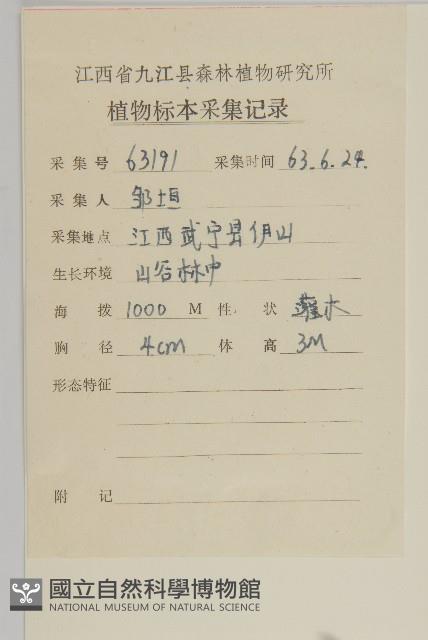 江西省九江县森林植物研究所
植物标本采集记录
采集号 63191 采集时间 63.6.24.
采集人 邹垣
采集地点 江西武宁县伊山
生长环境 山谷林中
海拨 1000 M 性状 灌木
胸径 4cm 体高 3M
形态特征
附记
國立自然科學博物館
NATIONAL MUSEUM OF NATURAL SCIENCE